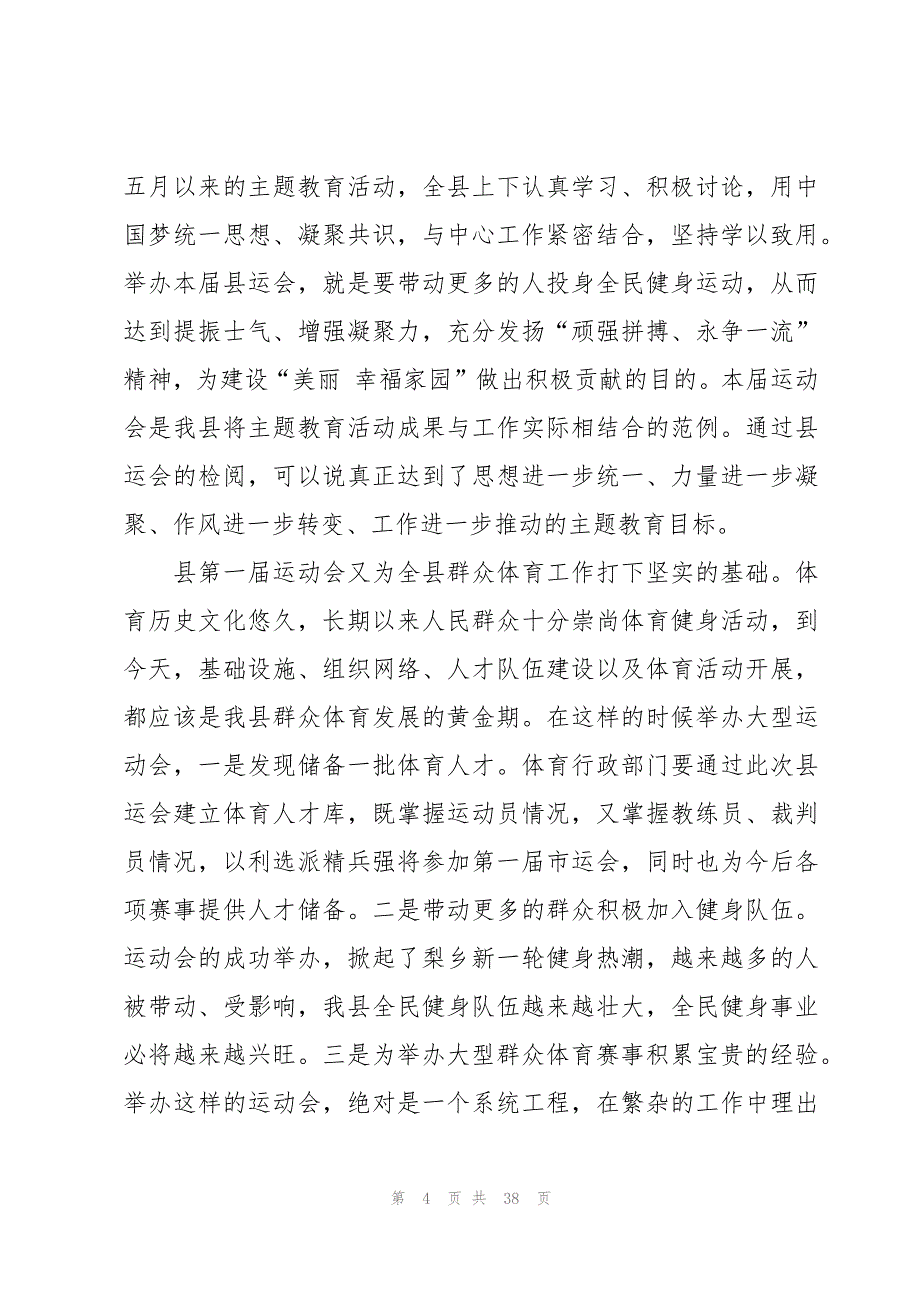 五月以来的主题教育活动，全县上下认真学习、积极讨论，用中
国梦统一思想、凝聚共识，与中心工作紧密结合，坚持学以致用。
举办本届县运会，就是要带动更多的人投身全民健身运动，从而
达到提振士气、增强凝聚力，充分发扬“顽强拼搏、永争一流”
精神，为建设“美丽 幸福家园”做出积极贡献的目的。本届运动
会是我县将主题教育活动成果与工作实际相结合的范例。通过县
运会的检阅，可以说真正达到了思想进一步统一、力量进一步凝
聚、作风进一步转变、工作进一步推动的主题教育目标。
县第一届运动会又为全县群众体育工作打下坚实的基础。体
育历史文化悠久，长期以来人民群众十分崇尚体育健身活动，到
今天，基础设施、组织网络、人才队伍建设以及体育活动开展，
都应该是我县群众体育发展的黄金期。在这样的时候举办大型运
动会，一是发现储备一批体育人才。体育行政部门要通过此次县
运会建立体育人才库，既掌握运动员情况，又掌握教练员、裁判
员情况，以利选派精兵强将参加第一届市运会，同时也为今后各
项赛事提供人才储备。二是带动更多的群众积极加入健身队伍。
运动会的成功举办，掀起了梨乡新一轮健身热潮，越来越多的人
被带动、受影响，我县全民健身队伍越来越壮大，全民健身事业
必将越来越兴旺。三是为举办大型群众体育赛事积累宝贵的经验。
举办这样的运动会，绝对是一个系统工程，在繁杂的工作中理出
第 4 页 共 38 页